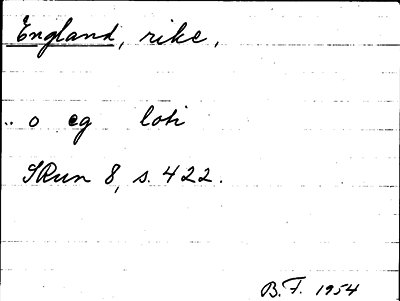 England, rike,
.. o eg loti
SRun 8, s. 422.
B.F. 1954